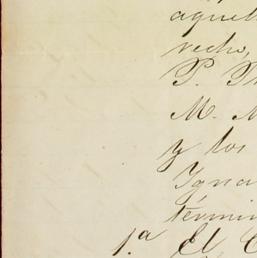 aquel
recho,
P. P
M. M
y los
Igna
términ
1.ª El C